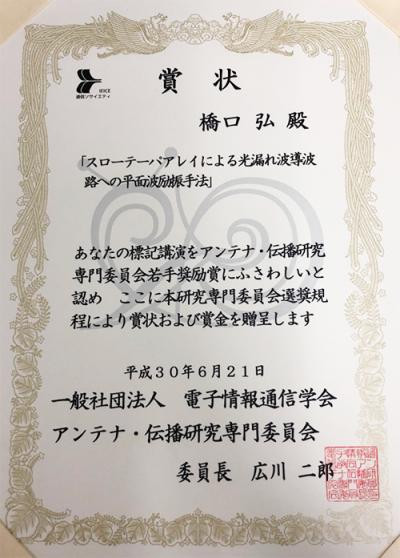 賞状
IEICE
通信ソサイエティ
橋口 弘 殿
「スローテーパアレイによる光漏れ波導波
路への平面波励振手法」
あなたの標記講演をアンテナ・伝播研究
専門委員会若手奨励賞にふさわしいと
認め ここに本研究専門委員会選奨規
程により賞状および賞金を贈呈します
平成30年6月21日
一般社団法人 電子情報通信学会
アンテナ・伝播研究専門委員会
委員長 広川 二郎